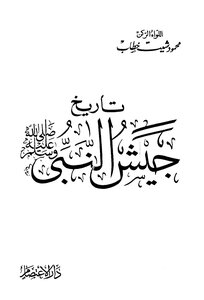 اللواء الركن
محمود شيت خطاب
تاريخ
جيش النبي صلى الله عليه وسلم
دار الاعتصام